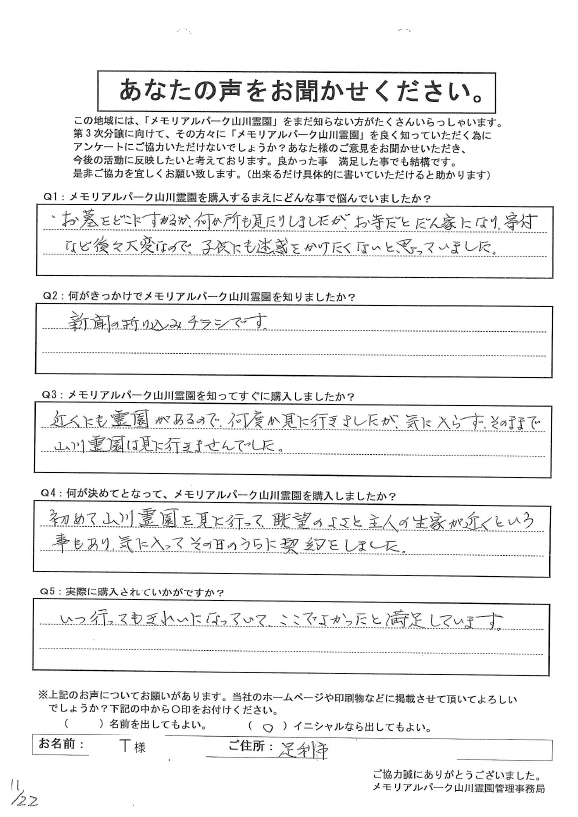 あなたの声をお聞かせください。
この地域には、「メモリアルパーク山川霊園」をまだ知らない方がたくさんいらっしゃいます。
第3次分譲に向けて、その方々に「メモリアルパーク山川霊園」を良く知っていただく為に
アンケートにご協力いただけないでしょうか？あなた様のご意見をお聞かせいただき、
今後の活動に反映したいと考えております。良かった事　満足した事でも結構です。
是非ご協力を宜しくお願い致します。（出来るだけ具体的に書いていただけると助かります）
Q1：メモリアルパーク山川霊園を購入するまえにどんな事で悩んでいましたか？
・お墓をどこにするか、何か所も見たりしましたが、お寺だとだん家になり、寄付
など後々大変なので、子供にも迷惑をかけたくないと思っていました。
Q2：何がきっかけでメモリアルパーク山川霊園を知りましたか？
新聞の折り込みチラシです。
Q3：メモリアルパーク山川霊園を知ってすぐに購入しましたか？
近くにも霊園があるので、何度か見に行きましたが、気に入らず、そのままで
山川霊園は見に行きませんでした。
Q4：何が決めてとなって、メモリアルパーク山川霊園を購入しましたか？
初めて山川霊園を見に行って、眺望のよさと主人の生家が近くという
事もあり、気に入ってその日のうちに契約をしました。
Q5：実際に購入されていかがですか？
いつ行ってもきれいになっていて、ここでよかったと満足しています。
※上記のお声についてお願いがあります。当社のホームページや印刷物などに掲載させて頂いてよろしい
でしょうか？下記の中から○印をお付けください。
（　　）名前を出してもよい。　（ ○ ）イニシャルなら出してもよい。
お名前：　T様　ご住所：足利市
ご協力誠にありがとうございました。
メモリアルパーク山川霊園管理事務局
11/22